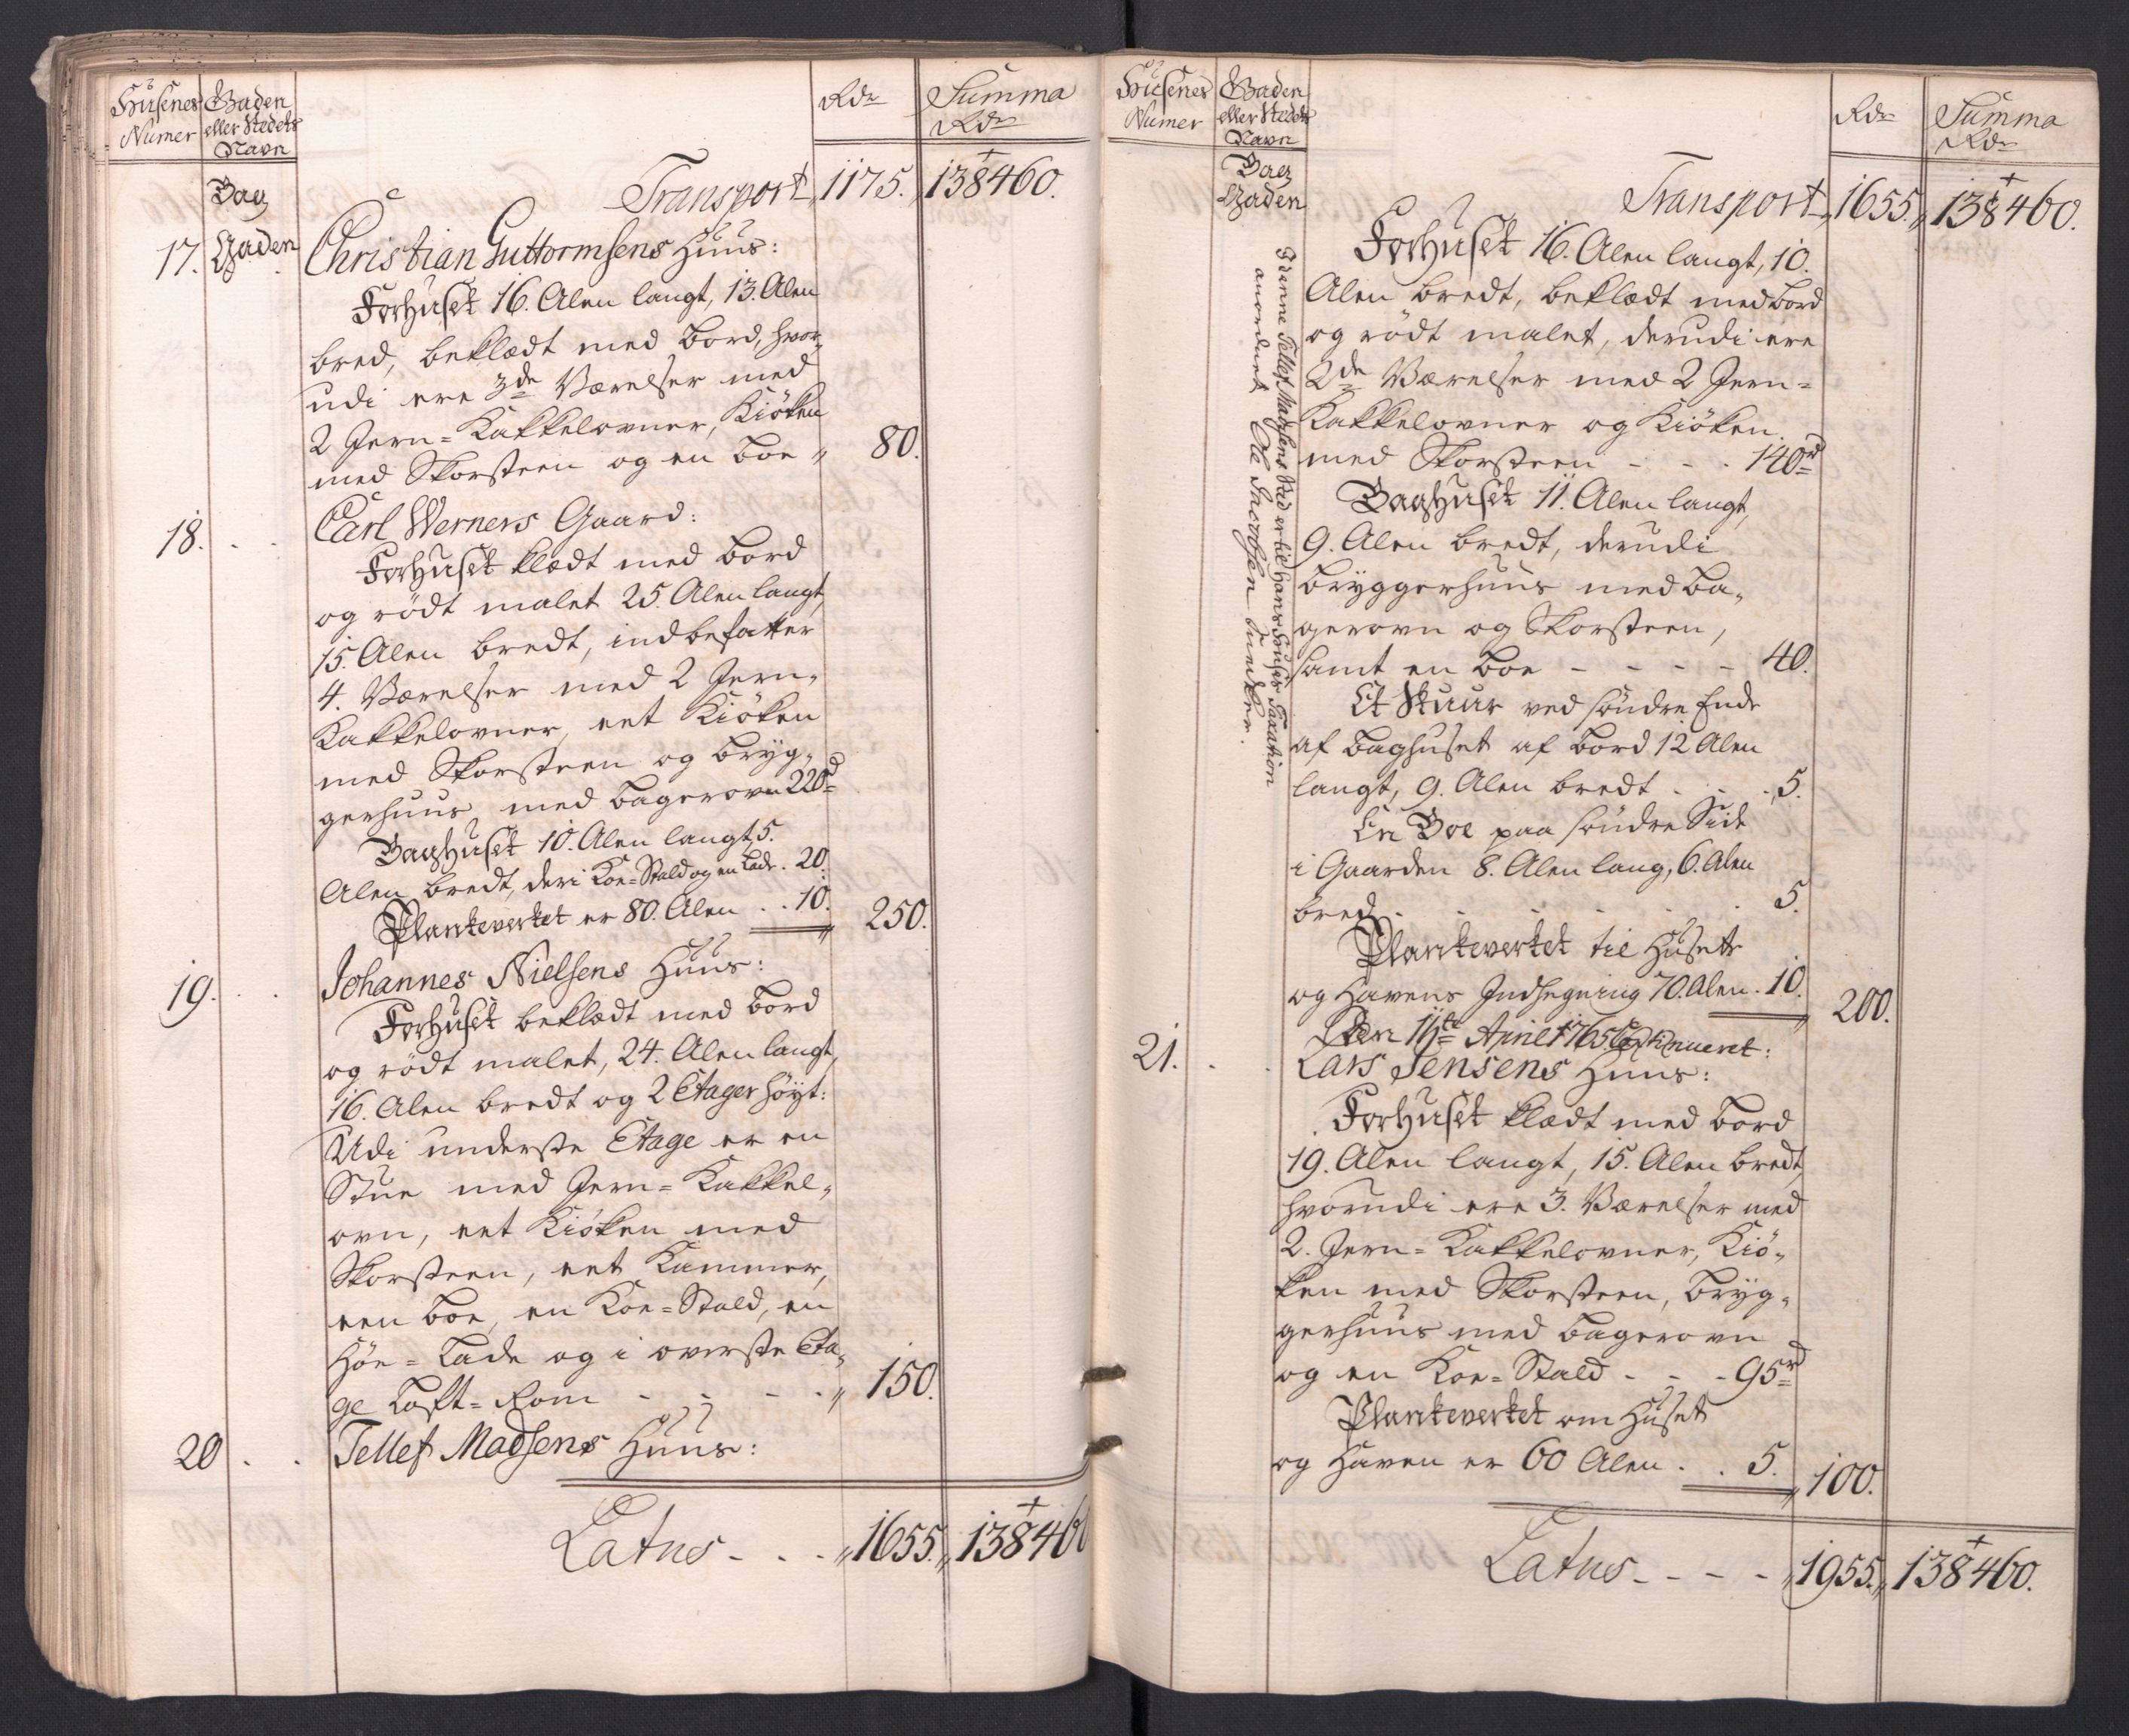 Husenes Numer
Gaden eller Stedets Navn
Rdr
Summa Rdr
Transport 1175. 138460.
Bag Gaden
17. Christian Guttormsens Huus:
Forhuset 16. Alen langt, 13. Alen
bred, beklædt med bord, hvor-
udi ere 3de Værelser med
2 Jern-Kakkelovner, Kiöken
med Skorsteen og en boe 80.
18. Carl Werners Gaard:
Forhuset klædt med bord
og rödt malet 25. Alen langt,
15. Alen bredt, indbefatter
4. Værelser med 2 Jern-
Kakkelovner, eet Kiöken
med Skorsteen og bryg-
gerhuus med bagerovn 220rd
Baghuset 10. Alen langt, 5.
Alen bredt, deri Koe-Stald og en Lade. 20.
Plankeverket er 80. Alen . . 10. 250.
19. Johannes Nielsens Huus:
Forhuset beklædt med bord
og rödt malet, 24. Alen langt,
16. Alen bredt og 2 Etager höyt:
Udi underste Etage er en
Stue med Jern-Kakkel-
ovn, eet Kiöken med
Skorsteen, eet Kammer,
een boe, en Koe-Stald, en
Höe-Lade og i överste Eta-
ge Loft-Rom - - - - 150.
20 Tellef Madsens Huus:
Latus - . . 1655. 138460
Husenes Numer
Gaden eller Stedets Navn
Rdr
Summa Rdr
Bag Gaden
Transport 1655. 138460.
I denne Tellef Madsens Sted er til hans Huuses Taxation
anordnet Ole Jacobsen Snedker.
Forhuset 16. Alen langt, 10.
Alen bredt, beklædt med bord
og rödt malet, derudi ere
2de Værelser med 2 Jern-
Kakkelovner og Kiöken
med Skorsteen - - . 140rd
Baghuset 11. Alen langt,
9. Alen bredt, derudi
bryggerhuus med ba-
gerovn og Skorsteen,
samt en boe - - - - 40.
Et Skuur ved söndre Ende
af baghuset af bord 12 Alen
langt, 9. Alen bredt . . . 5.
En Boe paa söndre Side
i Gaarden 8. Alen lang, 6. Alen
bred - - - - - 5.
Plankeverket til Husets
og Havens Indhegning 70. Alen. 10. 200.
Den 16te April 1765 Continueret:
21. Lars Jensens Huus:
Forhuset klædt med bord
19. Alen langt, 15. Alen bredt,
hvorudi ere 3. Værelser med
2. Jern-Kakkelovner, Kiö-
ken med Skorsteen, bryg-
gerhuus med bagerovn
og en Koe-Stald - - - 95rd
Plankeverket om Huset
og Haven er 60 Alen . . 5. 100.
Latus - - - - 1955. 138460.